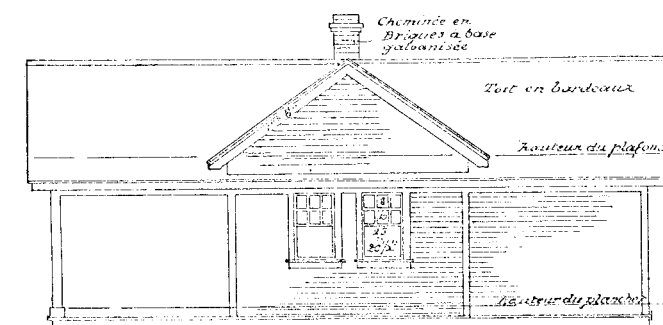 Cheminée en
Briques à base
galvanisée
Toit en bardeaux
Hauteur du plafond
6
8
10
25
Hauteur du plancher